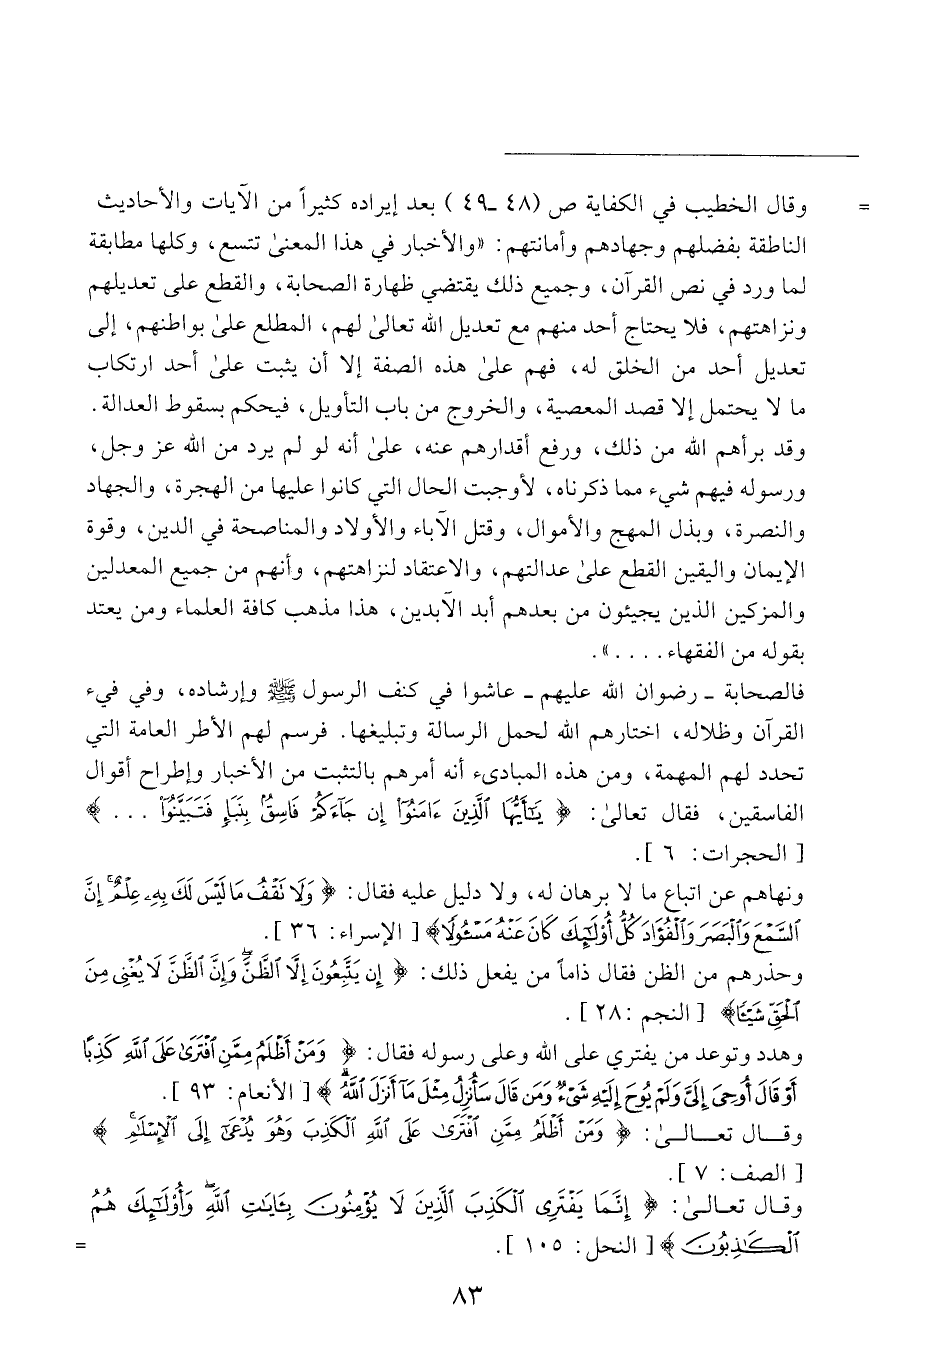 = وقال الخطيب في الكفاية ص (٤٨ ـ ٤٩ ) بعد إيراده كثيراً من الآيات والأحاديث
الناطقة بفضلهم وجهادهم وأمانتهم: «والأخبار في هذا المعنىٰ تتسع، وكلها مطابقة
لما ورد في نص القرآن، وجميع ذلك يقتضي ظهارة الصحابة، والقطع على تعديلهم
ونزاهتهم، فلا يحتاج أحد منهم مع تعديل الله تعالىٰ لهم، المطلع علىٰ بواطنهم، إلى
تعديل أحد من الخلق له، فهم علىٰ هذه الصفة إلا أن يثبت علىٰ أحد ارتكاب
ما لا يحتمل إلا قصد المعصية، والخروج من باب التأويل، فيحكم بسقوط العدالة.
وقد برأهم الله من ذلك، ورفع أقدارهم عنه، علىٰ أنه لو لم يرد من الله عز وجل،
ورسوله فيهم شيء مما ذكرناه، لأوجبت الحال التي كانوا عليها من الهجرة، والجهاد
والنصرة، وبذل المهج والأموال، وقتل الآباء والأولاد والمناصحة في الدين، وقوة
الإيمان واليقين القطع علىٰ عدالتهم، والاعتقاد لنزاهتهم، وأنهم من جميع المعدلين
والمزكين الذين يجيئون من بعدهم أبد الآبدين، هذا مذهب كافة العلماء ومن يعتد
بقوله من الفقهاء....».
فالصحابة ـ رضوان الله عليهم ـ عاشوا في كنف الرسول ﷺ وإرشاده، وفي فيء
القرآن وظلاله، اختارهم الله لحمل الرسالة وتبليغها. فرسم لهم الأطر العامة التي
تحدد لهم المهمة، ومن هذه المبادىء أنه أمرهم بالتثبت من الأخبار وإطراح أقوال
الفاسقين، فقال تعالىٰ: ﴿ يَـٰٓأَيُّهَا ٱلَّذِينَ ءَامَنُوٓا۟ إِن جَآءَكُمْ فَاسِقٌۢ بِنَبَإٍ فَتَبَيَّنُوٓا۟ ... ﴾
[ الحجرات: ٦ ].
ونهاهم عن اتباع ما لا برهان له، ولا دليل عليه فقال: ﴿ وَلَا تَقْفُ مَا لَيْسَ لَكَ بِهِۦ عِلْمٌ ۚ إِنَّ
ٱلسَّمْعَ وَٱلْبَصَرَ وَٱلْفُؤَادَ كُلُّ أُو۟لَـٰٓئِكَ كَانَ عَنْهُ مَسْـُٔولًا﴾ [ الإسراء: ٣٦ ].
وحذرهم من الظن فقال ذاماً من يفعل ذلك: ﴿ إِن يَتَّبِعُونَ إِلَّا ٱلظَّنَّ ۖ وَإِنَّ ٱلظَّنَّ لَا يُغْنِى مِنَ
ٱلْحَقِّ شَيْـًٔا﴾ [ النجم :٢٨ ].
وهدد وتوعد من يفتري على الله وعلى رسوله فقال: ﴿ وَمَنْ أَظْلَمُ مِمَّنِ ٱفْتَرَىٰ عَلَى ٱللَّهِ كَذِبًا
أَوْ قَالَ أُوحِىَ إِلَىَّ وَلَمْ يُوحَ إِلَيْهِ شَىْءٌ وَمَن قَالَ سَأُنزِلُ مِثْلَ مَآ أَنزَلَ ٱللَّهُ ۗ ﴾ [ الأنعام: ٩٣ ].
وقـال تعـالـىٰ: ﴿ وَمَنْ أَظْلَمُ مِمَّنِ ٱفْتَرَىٰ عَلَى ٱللَّهِ ٱلْكَذِبَ وَهُوَ يُدْعَىٰٓ إِلَى ٱلْإِسْلَـٰمِ ۚ ﴾
[ الصف: ٧ ].
وقـال تعـالـىٰ: ﴿ إِنَّمَا يَفْتَرِى ٱلْكَذِبَ ٱلَّذِينَ لَا يُؤْمِنُونَ بِـَٔايَـٰتِ ٱللَّهِ ۖ وَأُو۟لَـٰٓئِكَ هُمُ
ٱلْكَـٰذِبُونَ ﴾ [ النحل: ١٠٥ ]. =
٨٣